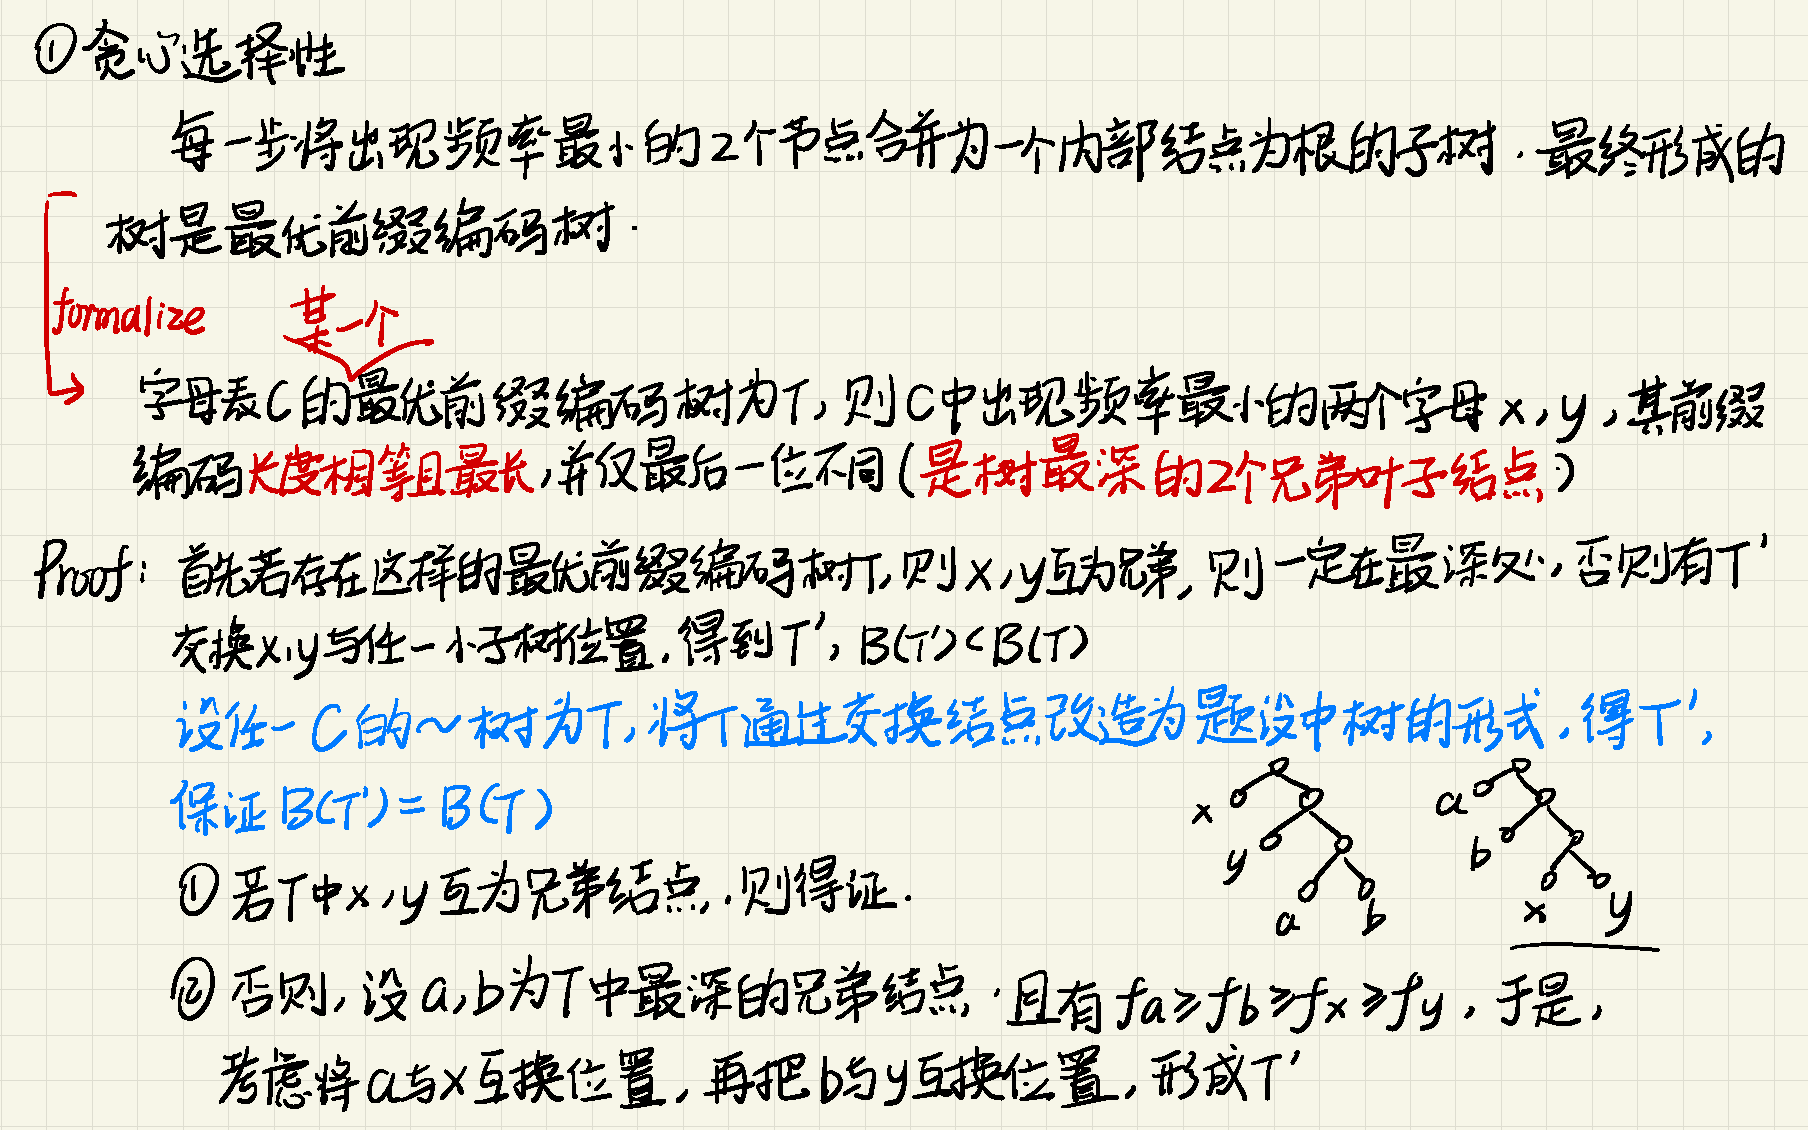 ①贪心选择性
每一步将出现频率最小的2个节点合并为一个内部结点为根的子树.最终形成的
树是最优前缀编码树.
formalize 某一个
字母表C的最优前缀编码树为T,则C中出现频率最小的两个字母x,y,其前缀
编码长度相等且最长,并仅最后一位不同(是树最深的2个兄弟叶子结点)
Proof: 首先若存在这样的最优前缀编码树T,则x,y互为兄弟,则一定在最深处,否则有T'
交换x,y与任一小子树位置.得到T', B(T')<B(T)
设任一C的~树为T,将T通过交换结点改造为题设中树的形式,得T',
保证B(T')=B(T)
x y a b
a b x y
①若T中x,y互为兄弟结点,则得证.
②否则,设a,b为T中最深的兄弟结点,且有fa≥fb≥fx≥fy,于是,
考虑将a与x互换位置,再把b与y互换位置,形成T'